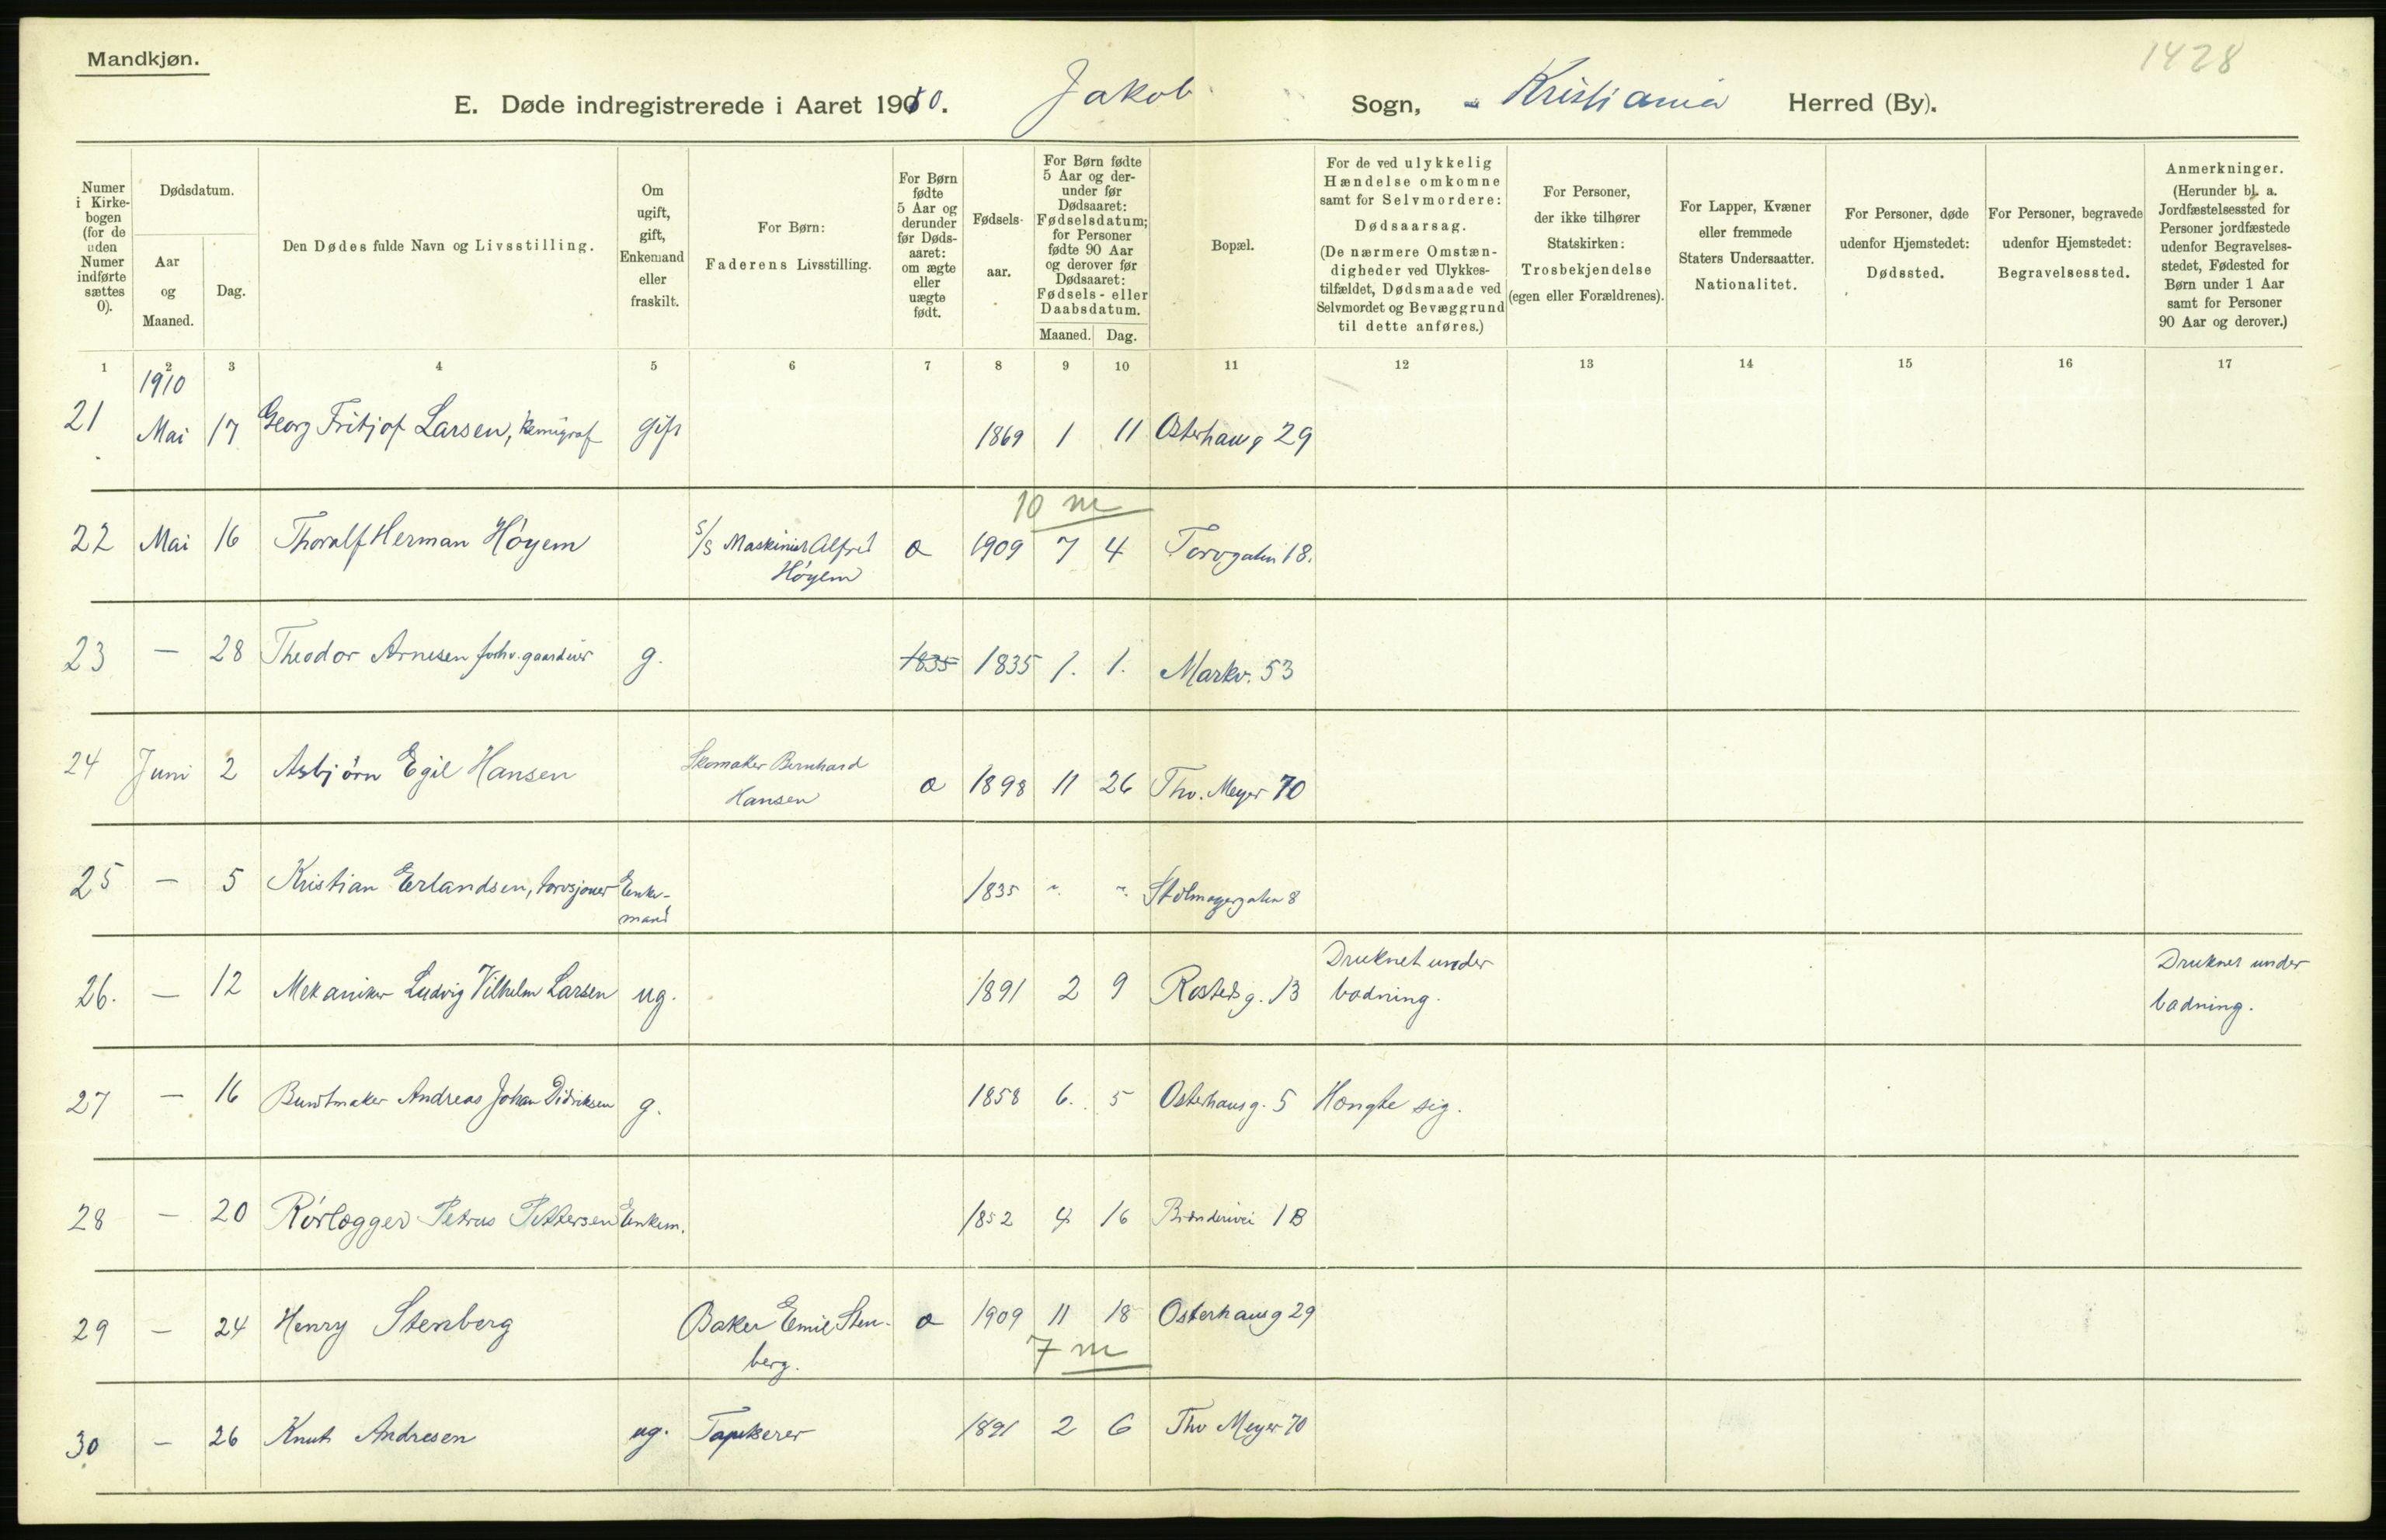 Mandkjøn.
1428
E. Døde indregistrerede i Aaret 1910. Jakob Sogn, Kristiania Herred (By).
Numer i Kirkebogen (for de uden Numer indførte sættes 0).
Dødsdatum.
Aar og Maaned.
Dag.
Den Dødes fulde Navn og Livsstilling.
Om ugift, gift, Enkemand eller fraskilt.
For Børn: Faderens Livsstilling.
For Børn fødte 5 Aar og derunder før Dødsaaret: om ægte eller uægte født.
Fødselsaar.
For Børn fødte 5 Aar og derunder før Dødsaaret: Fødselsdatum; for Personer fødte 90 Aar og derover før Dødsaaret: Fødsels- eller Daabsdatum.
Maaned. Dag.
Bopæl.
For de ved ulykkelig Hændelse omkomne samt for Selvmordere: Dødsaarsag. (De nærmere Omstændigheder ved Ulykkestilfældet, Dødsmaade ved Selvmordet og Bevæggrund til dette anføres.)
For Personer, der ikke tilhører Statskirken: Trosbekjendelse (egen eller Forældrenes).
For Lapper, Kvæner eller fremmede Staters Undersaatter. Nationalitet.
For Personer, døde udenfor Hjemstedet: Dødssted.
For Personer, begravede udenfor Hjemstedet: Begravelsessted.
Anmerkninger. (Herunder bl. a. Jordfæstelsessted for Personer jordfæstede udenfor Begravelsesstedet, Fødested for Børn under 1 Aar samt for Personer 90 Aar og derover.)
1 2 3 4 5 6 7 8 9 10 11 12 13 14 15 16 17
1910
21 Mai 17 Georg Fritjof Larsen, kemigraf gift 1869 1 11 Osterhausg 29
10 m
22 Mai 16 Thoralf Herman Höyem S/S Maskinist Alfred Höyem a 1909 7 4 Torvgaten 18.
23 — 28 Theodor Arnesen forhv. gaardeier g. 1835 1835 1. 1. Markv. 53
24 Juni 2 Asbjörn Egil Hansen Skomaker Bernhard Hansen a 1898 11 26 Thv. Meyer 70
25 — 5 Kristian Erlandsen, torvsjouer Enkemand 1835 " " Stolmagergaten 8
26. — 12 Mekaniker Ludvig Vilhelm Larsen ug. 1891 2 9 Rostedsg. 13 Druknet under badning. Druknet under badning.
27 — 16 Buntmaker Andreas Johan Didriksen g. 1858 6. 5 Osterhausg. 5 Hængte sig.
28 — 20 Rörlægger Petrus Pettersen Enkem. 1852 4 16 1B
29 — 24 Henry Stenberg Baker Emil Stenberg. a 1909 11 18 Osterhausg 29
7 m
30 — 26 Knut Andresen ug. Tapetserer 1891 2 6 Thv Meyer 70